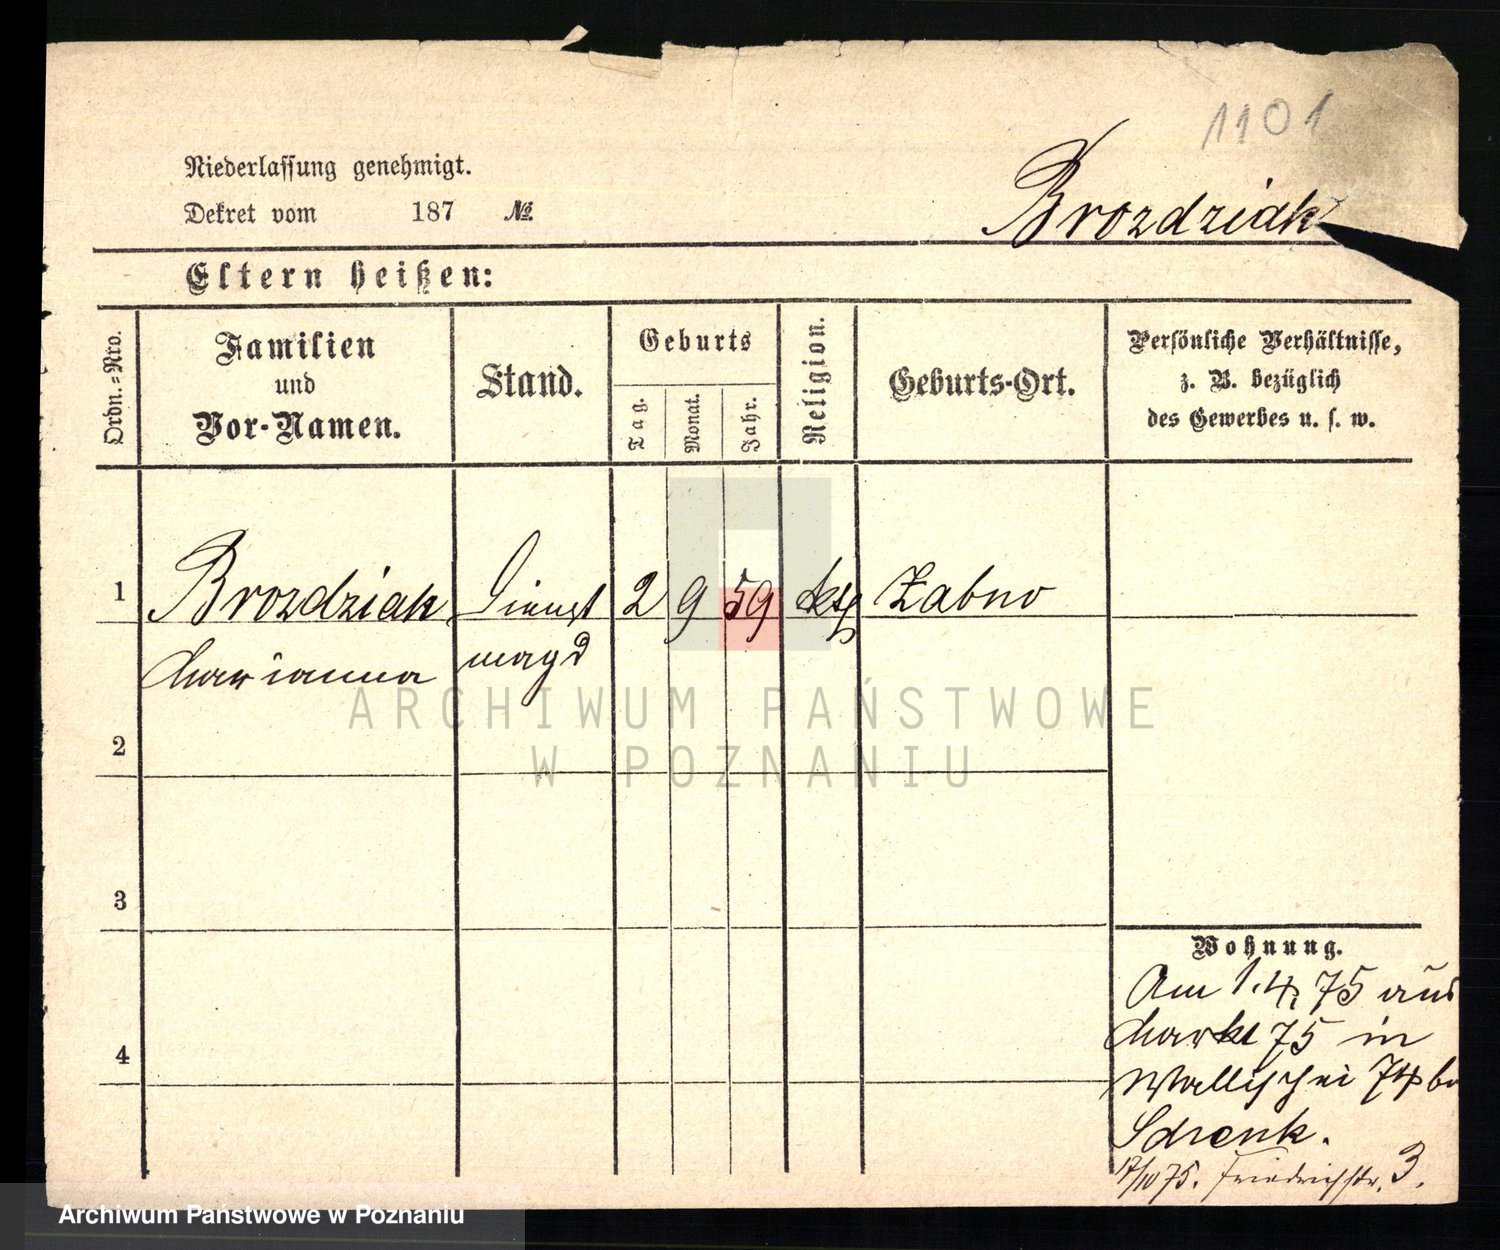 1101
Niederlassung genehmigt.
Dekret vom 187 №
Brozdziak
Eltern heißen:
Ordn.=Nro.
Familien
und
Vor-Namen.
Stand.
Geburts
Tag.
Monat.
Jahr.
Religion.
Geburts-Ort.
Persönliche Verhältnisse,
z. B. bezüglich
des Gewerbes u. s. w.
1 Brozdziak Dienst 2 9 59 kth Żabno
Marianna magd
2
3
4
Wohnung.
Am 1.4.75 aus
Markt 75 in
Wallischei 74 bei
Sdrenk.
17/10 75. Friedrichstr. 3.
ARCHIWUM PAŃSTWOWE
W POZNANIU
Archiwum Państwowe w Poznaniu